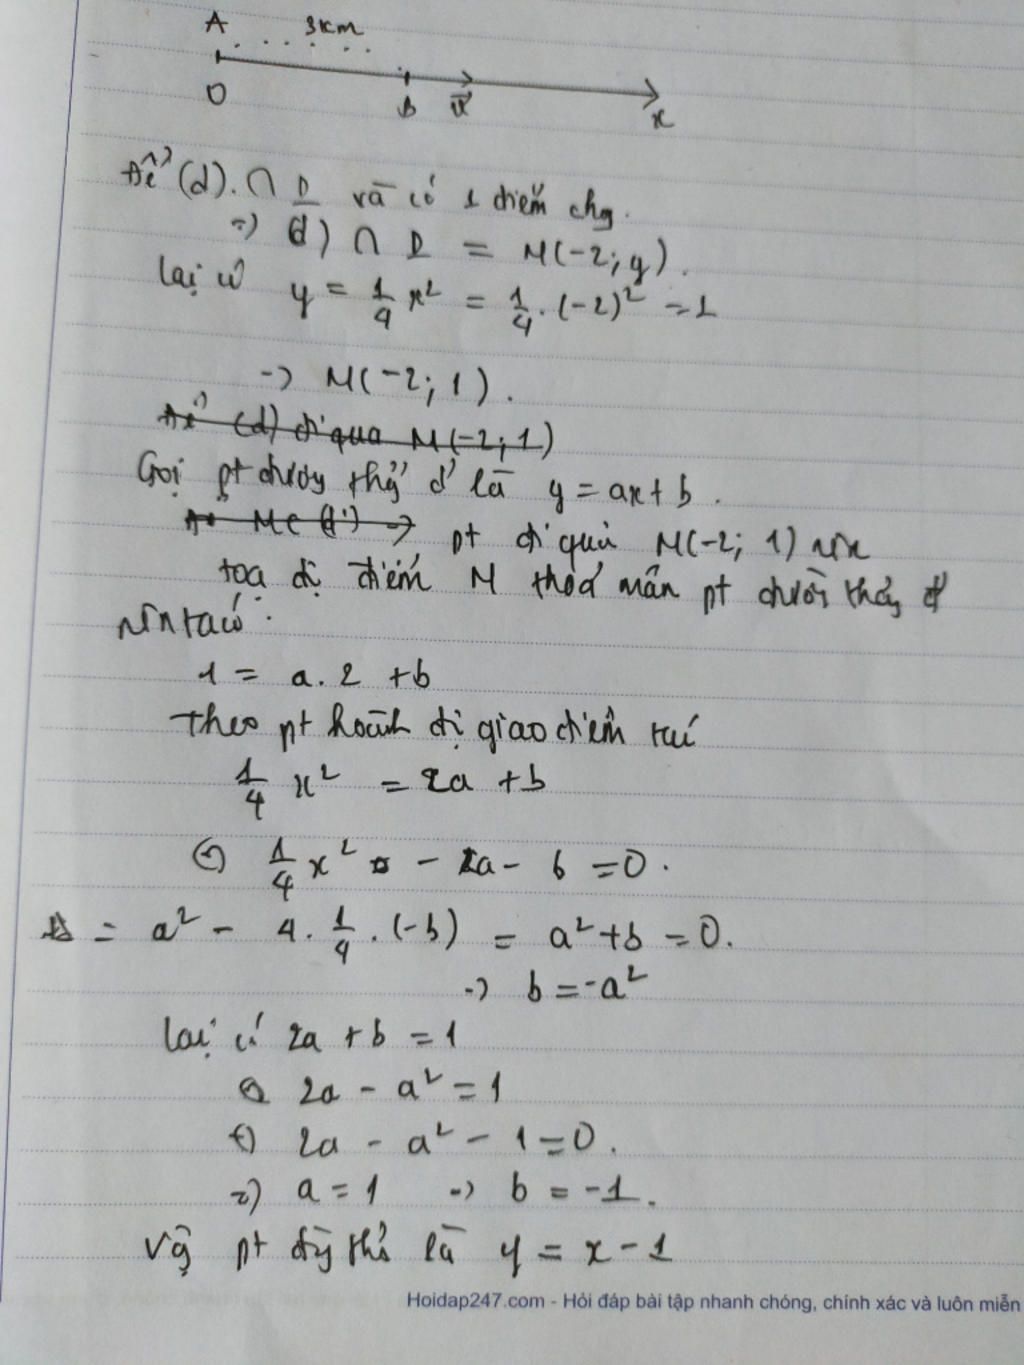 A 3km
O B v x
Để (d) ∩ P và có 1 điểm chg.
=) (d) ∩ P = M(-2; y).
lại có y = 1/4 x² = 1/4 . (-2)² = 1
-> M(-2; 1).
Để (d) đi qua M(-2; 1)
Gọi pt đương thẳg d' là y = ax + b .
M ∈ (d') -> pt đi qua M(-2; 1) nên
toạ độ điểm M thoả mãn pt đườn thẳg d'
nên ta có :
1 = a. 2 + b
Theo pt hoành độ giao điểm ta có
1/4 x² = 2a + b
<=> 1/4 x² - 2a - b = 0 .
Δ = a² - 4. 1/4 . (-b) = a² + b = 0.
-> b = -a²
lại có 2a + b = 1
<=> 2a - a² = 1
<=> 2a - a² - 1 = 0.
=) a = 1 -> b = -1.
Vậy pt đg thẳ là y = x - 1
Hoidap247.com - Hỏi đáp bài tập nhanh chóng, chính xác và luôn miễn